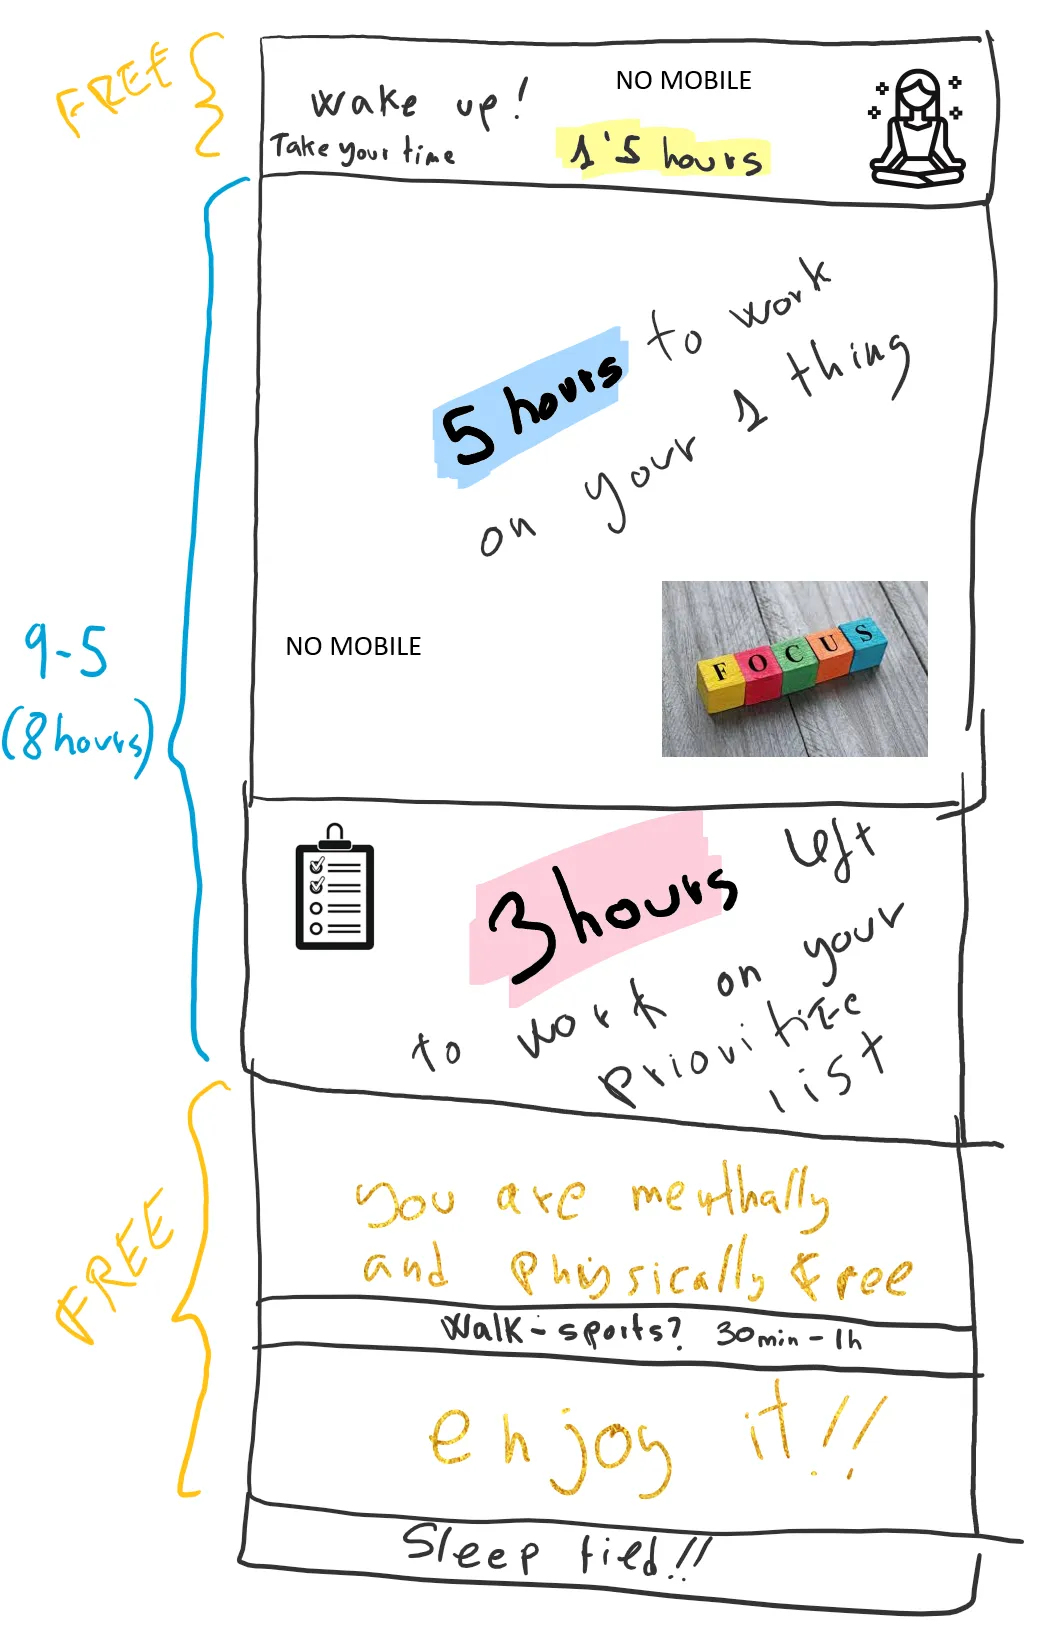 FREE
wake up!
NO MOBILE
Take your time
1'5 hours
5 hours to work
on your 1 thing
9-5
(8 hours)
NO MOBILE
FOCUS
3 hours left
to work on your
prioritize
list
FREE
you are menthally
and physically free
Walk - sports? 30min - 1h
enjoy it!!
Sleep tied!!